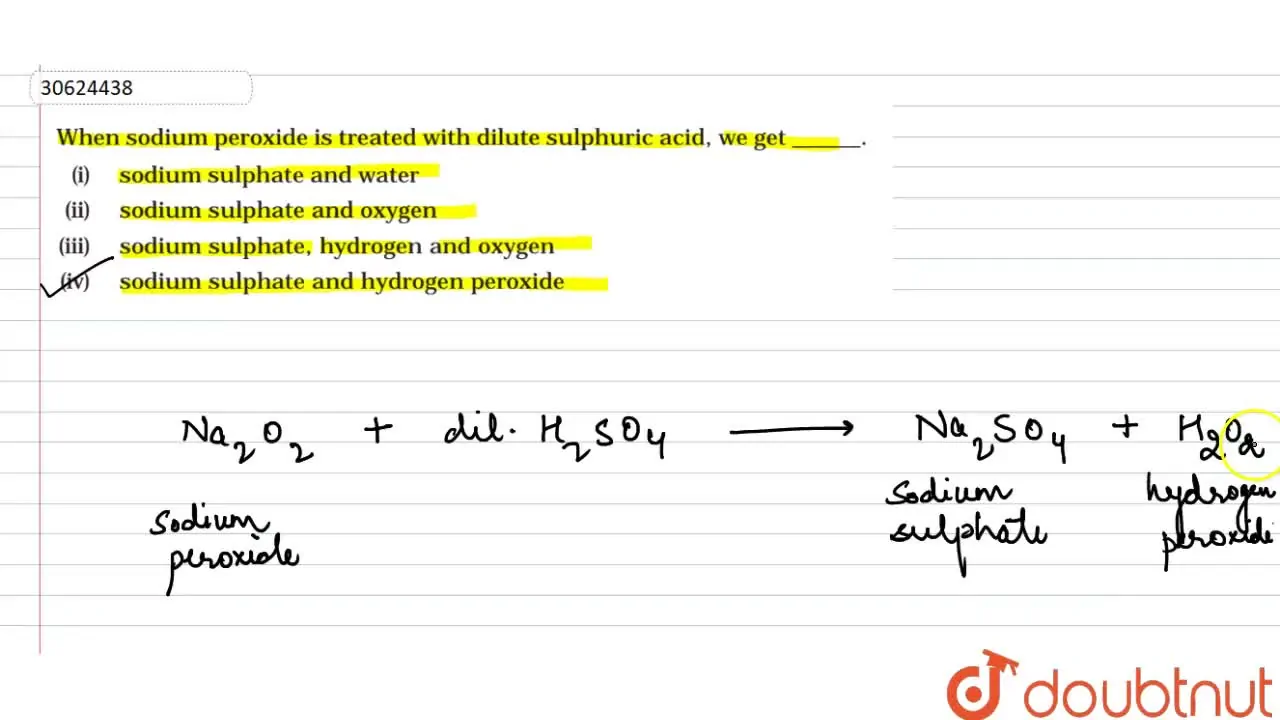 30624438
When sodium peroxide is treated with dilute sulphuric acid, we get ______.
(i) sodium sulphate and water
(ii) sodium sulphate and oxygen
(iii) sodium sulphate, hydrogen and oxygen
(iv) sodium sulphate and hydrogen peroxide
Na2O2 + dil. H2SO4 ⟶ Na2SO4 + H2O2
sodium peroxide
sodium sulphate
hydrogen peroxide
doubtnut